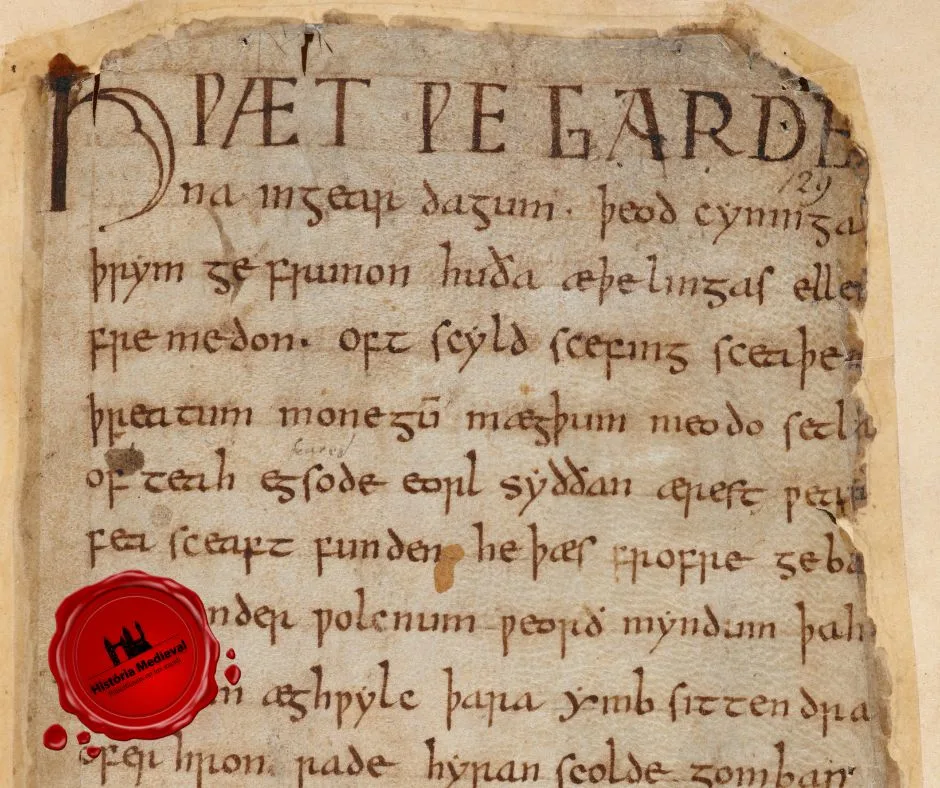 HǷÆT ǷE GARDE
129
na ingear dagum· þeod cyninga
þrym ge frunon huða æþelingas elle
fre medon· oft scyld scefing sceaþe
þreatum monegū mægþum meodo setla
of teah egsode eorl syððan ærest ƿear
fea sceaft funden he þæs frofre geba
nder ƿolcnum ƿeorð myndum þah
m æghƿylc þara ymb sittendra
ofer hron rade hyran scolde gomban
História Medieval